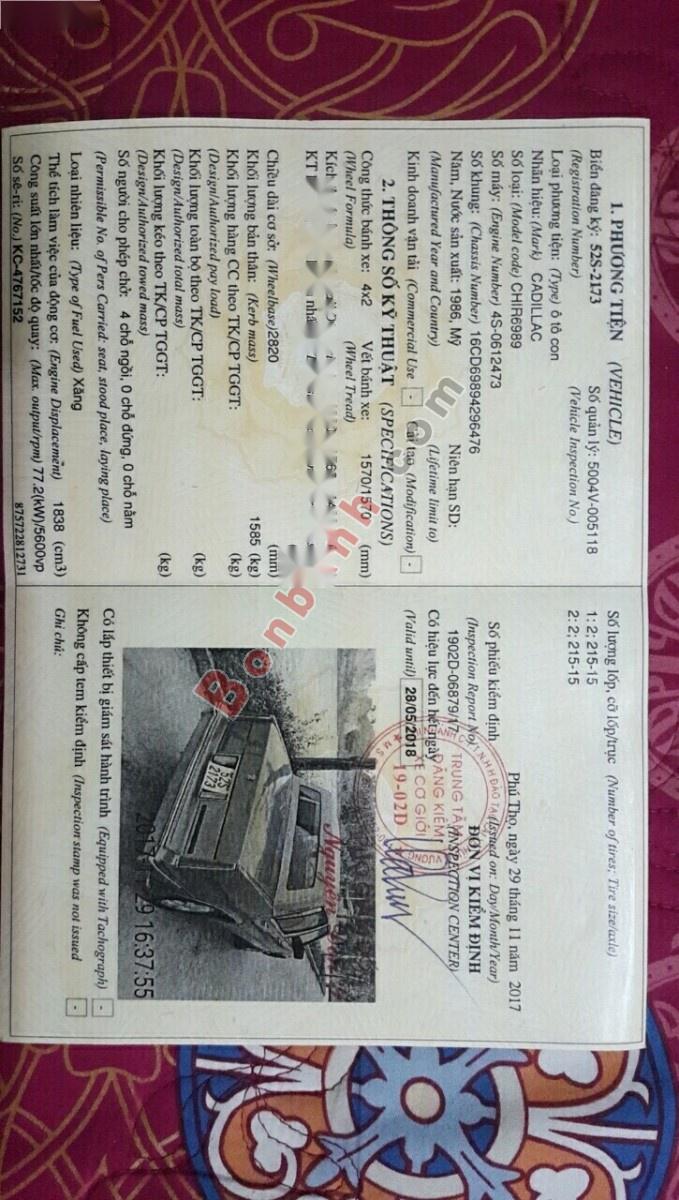 1. PHƯƠNG TIỆN (VEHICLE)
Biển đăng ký: 52S-2173 Số quản lý: 5004V-005118
(Registration Number) (Vehicle Inspection No.)
Loại phương tiện: (Type) ô tô con
Nhãn hiệu: (Mark) CADILLAC
Số loại: (Model code) CHIR6989
Số máy: (Engine Number) 4S-0612473
Số khung: (Chassis Number) 16CD69894296476
Năm, Nước sản xuất: 1986, Mỹ Niên hạn SD:
(Manufactured Year and Country) (Lifetime limit to)
Kinh doanh vận tải (Commercial Use) - Cải tạo (Modification) -
2. THÔNG SỐ KỸ THUẬT (SPECIFICATIONS)
Công thức bánh xe: 4x2 Vết bánh xe: 1570/1570 (mm)
(Wheel Formula) (Wheel Tread)
Kích
KT
Chiều dài cơ sở: (Wheelbase) 2820 (mm)
Khối lượng bản thân: (Kerb mass) 1585 (kg)
Khối lượng hàng CC theo TK/CP TGGT: (kg)
(Design/Authorized pay load)
Khối lượng toàn bộ theo TK/CP TGGT: (kg)
(Design/Authorized total mass)
Khối lượng kéo theo TK/CP TGGT: (kg)
(Design/Authorized towed mass)
Số người cho phép chở: 4 chỗ ngồi, 0 chỗ đứng, 0 chỗ nằm
(Permissible No. of Pers Carried: seat, stood place, laying place)
Loại nhiên liệu: (Type of Fuel Used) Xăng
Thể tích làm việc của động cơ: (Engine Displacement) 1838 (cm3)
Công suất lớn nhất/tốc độ quay: (Max. output/rpm) 77.2(kW)/5600vp
Số sê-ri: (No.) KC-4767152 875722812731
Số lượng lốp, cỡ lốp/trục (Number of tires; Tire size/axle)
1: 2; 215-15
2: 2; 215-15
Phú Thọ, ngày 29 tháng 11 năm 2017
(Issued on: Day/Month/Year)
Số phiếu kiểm định ĐƠN VỊ KIỂM ĐỊNH
(Inspection Report No) (INSPECTION CENTER)
1902D-06879/17
Có hiệu lực đến hết ngày
(Valid until) 28/05/2018
TRUNG TÂM
ĐĂNG KIỂM
XE CƠ GIỚI
19-02D
52S
2173
29 16:37:55
Có lắp thiết bị giám sát hành trình (Equipped with Tachograph) -
Không cấp tem kiểm định (Inspection stamp was not issued -
Ghi chú:
Bonbanh.com